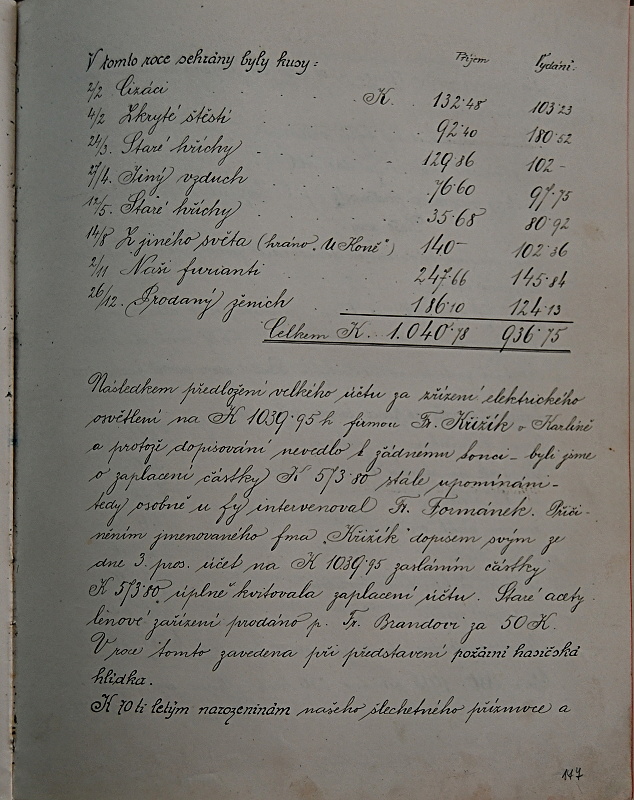 V tomto roce sehrány byly kusy: Příjem Vydání.
2/2 Cizáci K. 132·48 103·23
4/2 Zkryté štěstí 92·40 180·52
24/3. Staré hříchy 129·86 102-
27/4. Jiný vzduch 76·60 97·75
12/5. Staré hříchy 35·68 80·92
14/8 Z jiného světa (hráno „U Koně") 140- 102·36
2/11 Naši furianti 247·66 145·84
26/12. Prodaný ženich 186·10 124·13
Celkem K. 1.040·78 936·75
Následkem předložení velkého účtu za zřízení elektrického
osvětlení na K 1039·95 h firmou Fr. Křižík v Karlíně
a protož dopisování nevedlo k žádnému konci - byli jsme
o zaplacení částky K 573·80 stále upomínáni -
tedy osobně u fy intervenoval Fr. Formánek. Přiči-
něním jmenovaného fma „Křižík" dopisem svým ze
dne 3. pros. účet na K 1039·95 zasláním částky
K 573·80 úplně kvitovala zaplacení účtu. Staré acety
lénové zařízení prodáno p. Fr. Brandovi za 50 K.
V roce tomto zavedena při představení požární hasičská
hlídka.
K 70 ti letým narozeninám našeho šlechetného příznivce a
117